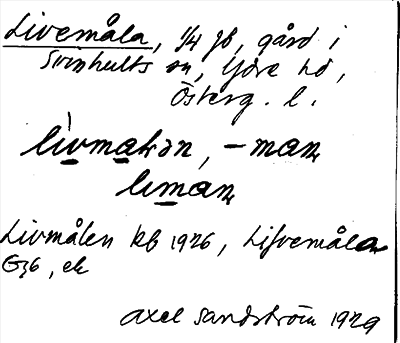 Livemåla, 1/4 jb, gård i
Svinhults sn, Ydre hd,
Österg. l.
livmalon, -man
liman
Livmålen kb 1926, Lifvemåla
GS6, ek
Axel Sandström 1929